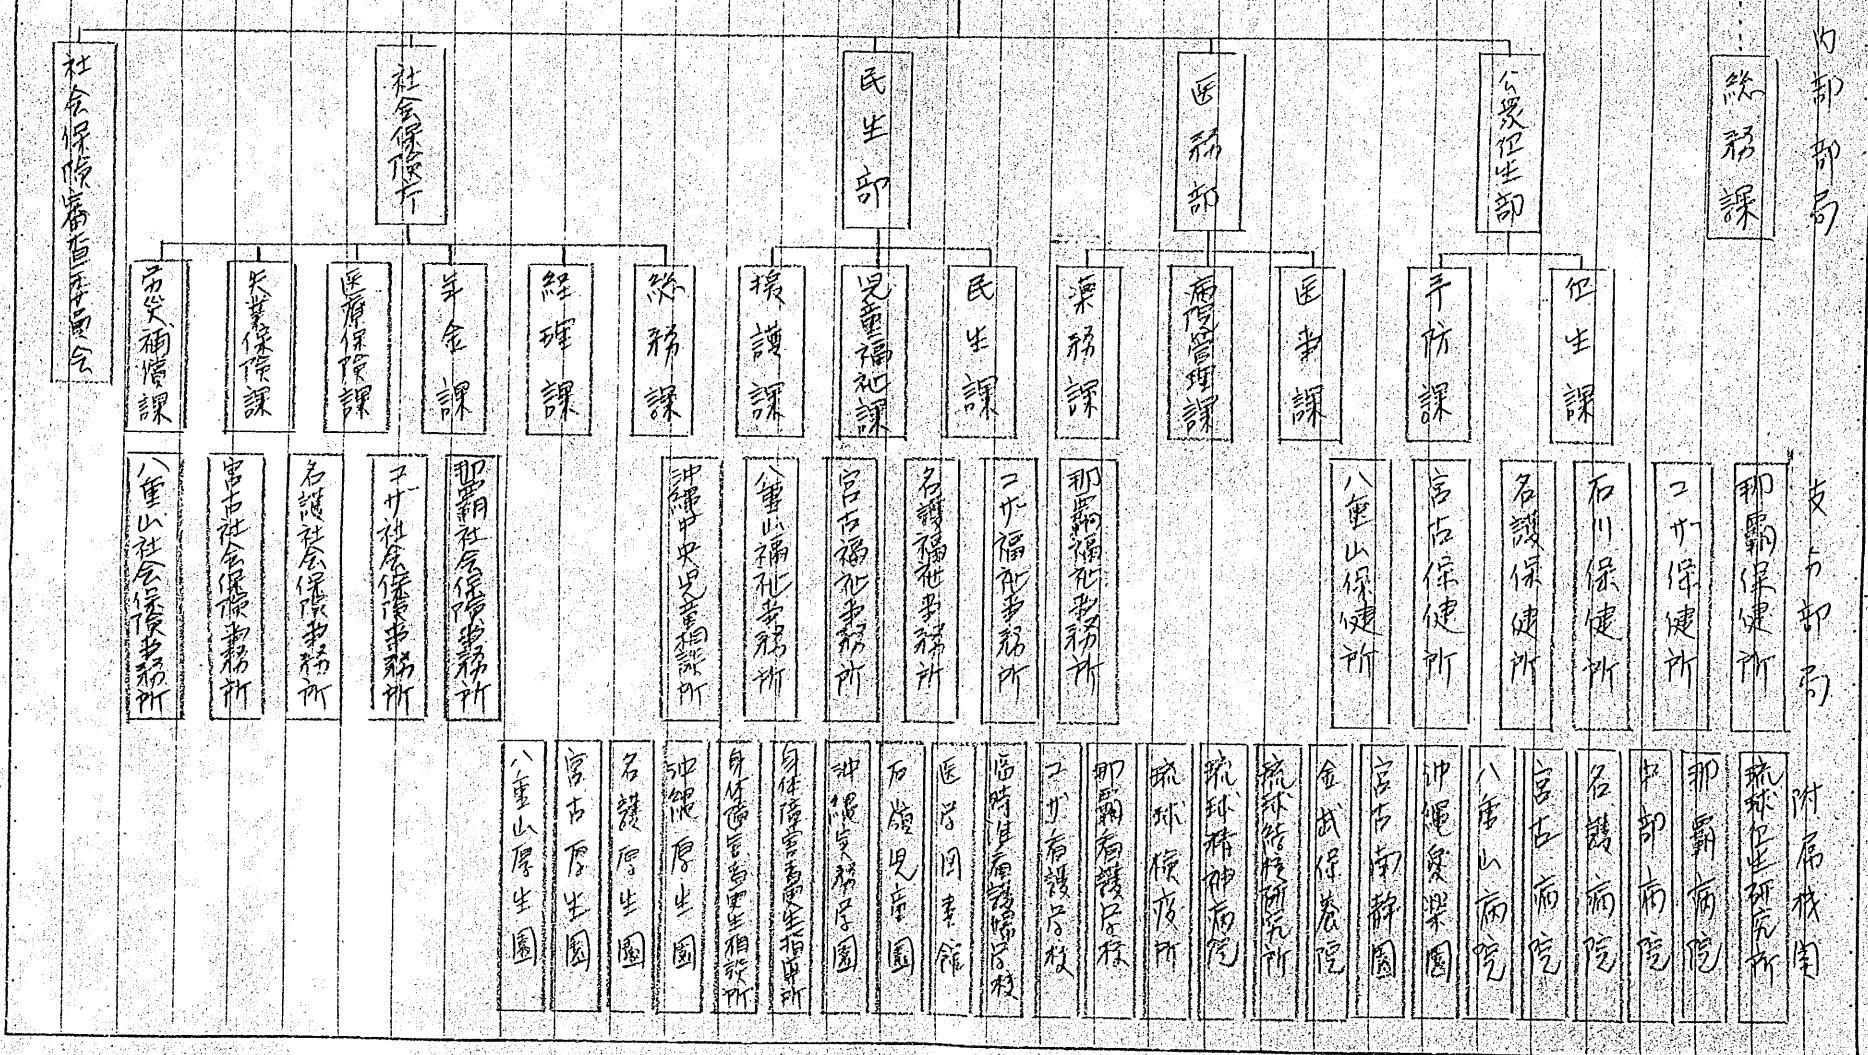 内部部局
総務課
公衆衛生部
医務部
民生部
社会保険庁
社会保険審査委員会
衛生課
予防課
医事課
病院管理課
薬務課
民生課
児童福祉課
援護課
総務課
経理課
年金課
医療保険課
失業保険課
労災補償課
支分部局
那覇保健所
コザ保健所
石川保健所
名護保健所
宮古保健所
八重山保健所
那覇福祉事務所
コザ福祉事務所
名護福祉事務所
宮古福祉事務所
八重山福祉事務所
沖縄中央児童相談所
那覇社会保険事務所
コザ社会保険事務所
名護社会保険事務所
宮古社会保険事務所
八重山社会保険事務所
附属機関
琉球衛生研究所
那覇病院
中部病院
名護病院
宮古病院
八重山病院
沖縄愛楽園
宮古南静園
金武保養院
琉球結核研究所
琉球精神病院
琉球検疫所
那覇看護学校
コザ看護学校
臨時准看護婦学校
医学図書館
石嶺児童園
沖縄実務学園
身体障害者更生指導所
身体障害者更生相談所
沖縄厚生園
名護厚生園
宮古厚生園
八重山厚生園